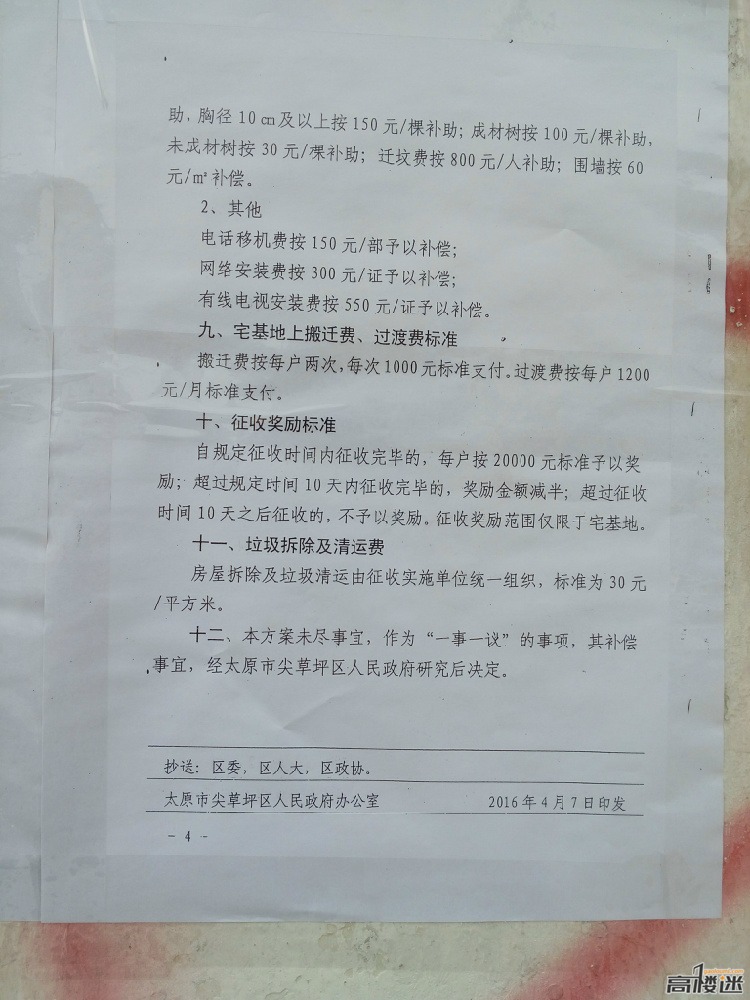 助，胸径 10 ㎝及以上按 150 元/棵补助；成材树按 100 元/棵补助，
未成材树按 30 元/棵补助；迁坟费按 800 元/人补助；围墙按 60
元/㎡补偿。
2、其他
电话移机费按 150 元/部予以补偿；
网络安装费按 300 元/证予以补偿；
有线电视安装费按 550 元/证予以补偿。
九、宅基地上搬迁费、过渡费标准
搬迁费按每户两次，每次1000 元标准支付。过渡费按每户 1200
元/月标准支付。
十、征收奖励标准
自规定征收时间内征收完毕的，每户按 20000 元标准予以奖
励；超过规定时间 10 天内征收完毕的，奖励金额减半；超过征收
时间 10 天之后征收的，不予以奖励。征收奖励范围仅限于宅基地。
十一、垃圾拆除及清运费
房屋拆除及垃圾清运由征收实施单位统一组织，标准为 30 元
/平方米。
十二、本方案未尽事宜，作为“一事一议”的事项，其补偿
事宜，经太原市尖草坪区人民政府研究后决定。
抄送：区委，区人大，区政协。
太原市尖草坪区人民政府办公室 2016 年 4 月 7 日印发
- 4 -
高楼迷